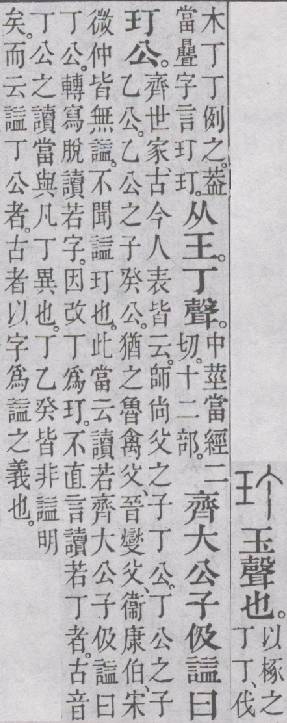 玎玉聲也。以椓之丁丁、伐
木丁丁例之。葢當曡字言玎玎。从王。丁聲。中莖當經二切。十二部。齊大公子伋謚曰
玎公。齊世家、古今人表皆云。師尚父之子丁公。丁公之子乙公。乙公之子癸公。猶之魯禽父、晉燮父、衞康伯、宋
微仲皆無謚。不聞謚玎也。此當云讀若齊大公子伋謚曰丁公。轉寫脫讀若字。因改丁爲玎。不直言讀若丁者。古音
丁公之讀當與凡丁異也。丁乙癸皆非謚明矣。而云謚丁公者。古者以字爲謚之義也。